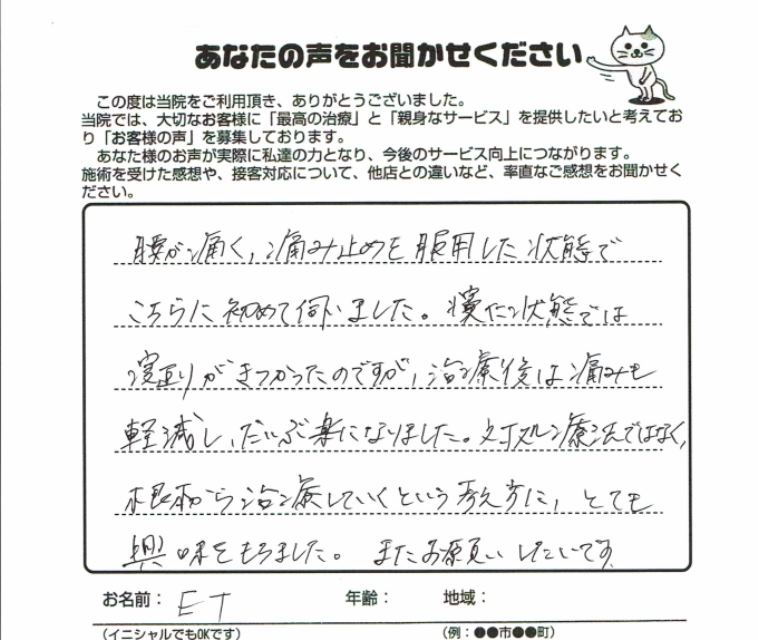 あなたの声をお聞かせください
この度は当院をご利用頂き、ありがとうございました。
当院では、大切なお客様に「最高の治療」と「親身なサービス」を提供したいと考えてお
り「お客様の声」を募集しております。
あなた様のお声が実際に私達の力となり、今後のサービス向上につながります。
施術を受けた感想や、接客対応について、他店との違いなど、率直なご感想をお聞かせく
ださい。
腰が痛く、痛み止めを服用した状態で
こちらに初めて伺いました。寝た状態では
寝返りがきつかったのですが、治療後は痛みも
軽減し、だいぶ楽になりました。対処療法ではなく、
根本から治療していくという考え方に、とても
興味をもちました。またお願いしたいです。
お名前：ET 年齢： 地域：
（イニシャルでもOKです） （例：●●市●●町）